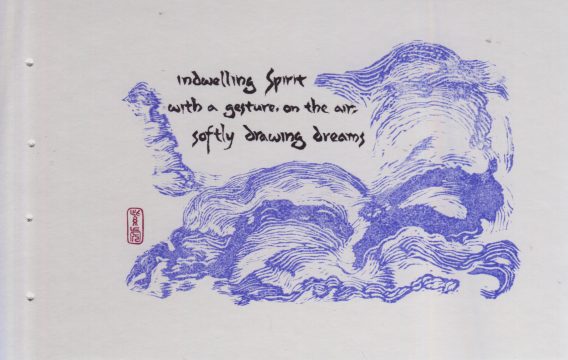 indwelling Spirit
with a gesture, on the air,
softly drawing dreams